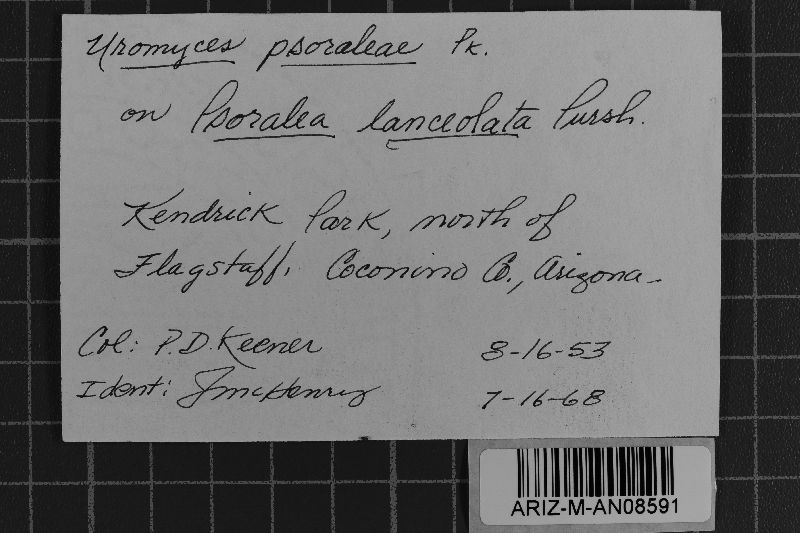 Uromyces psoraleae Pk.
on Psoralea lanceolata Pursh.
Kendrick Park, north of
Flagstaff, Coconino Co., Arizona
Col: P.D. Keener 8-16-53
Ident: J McHenry 7-16-68
ARIZ-M-AN08591